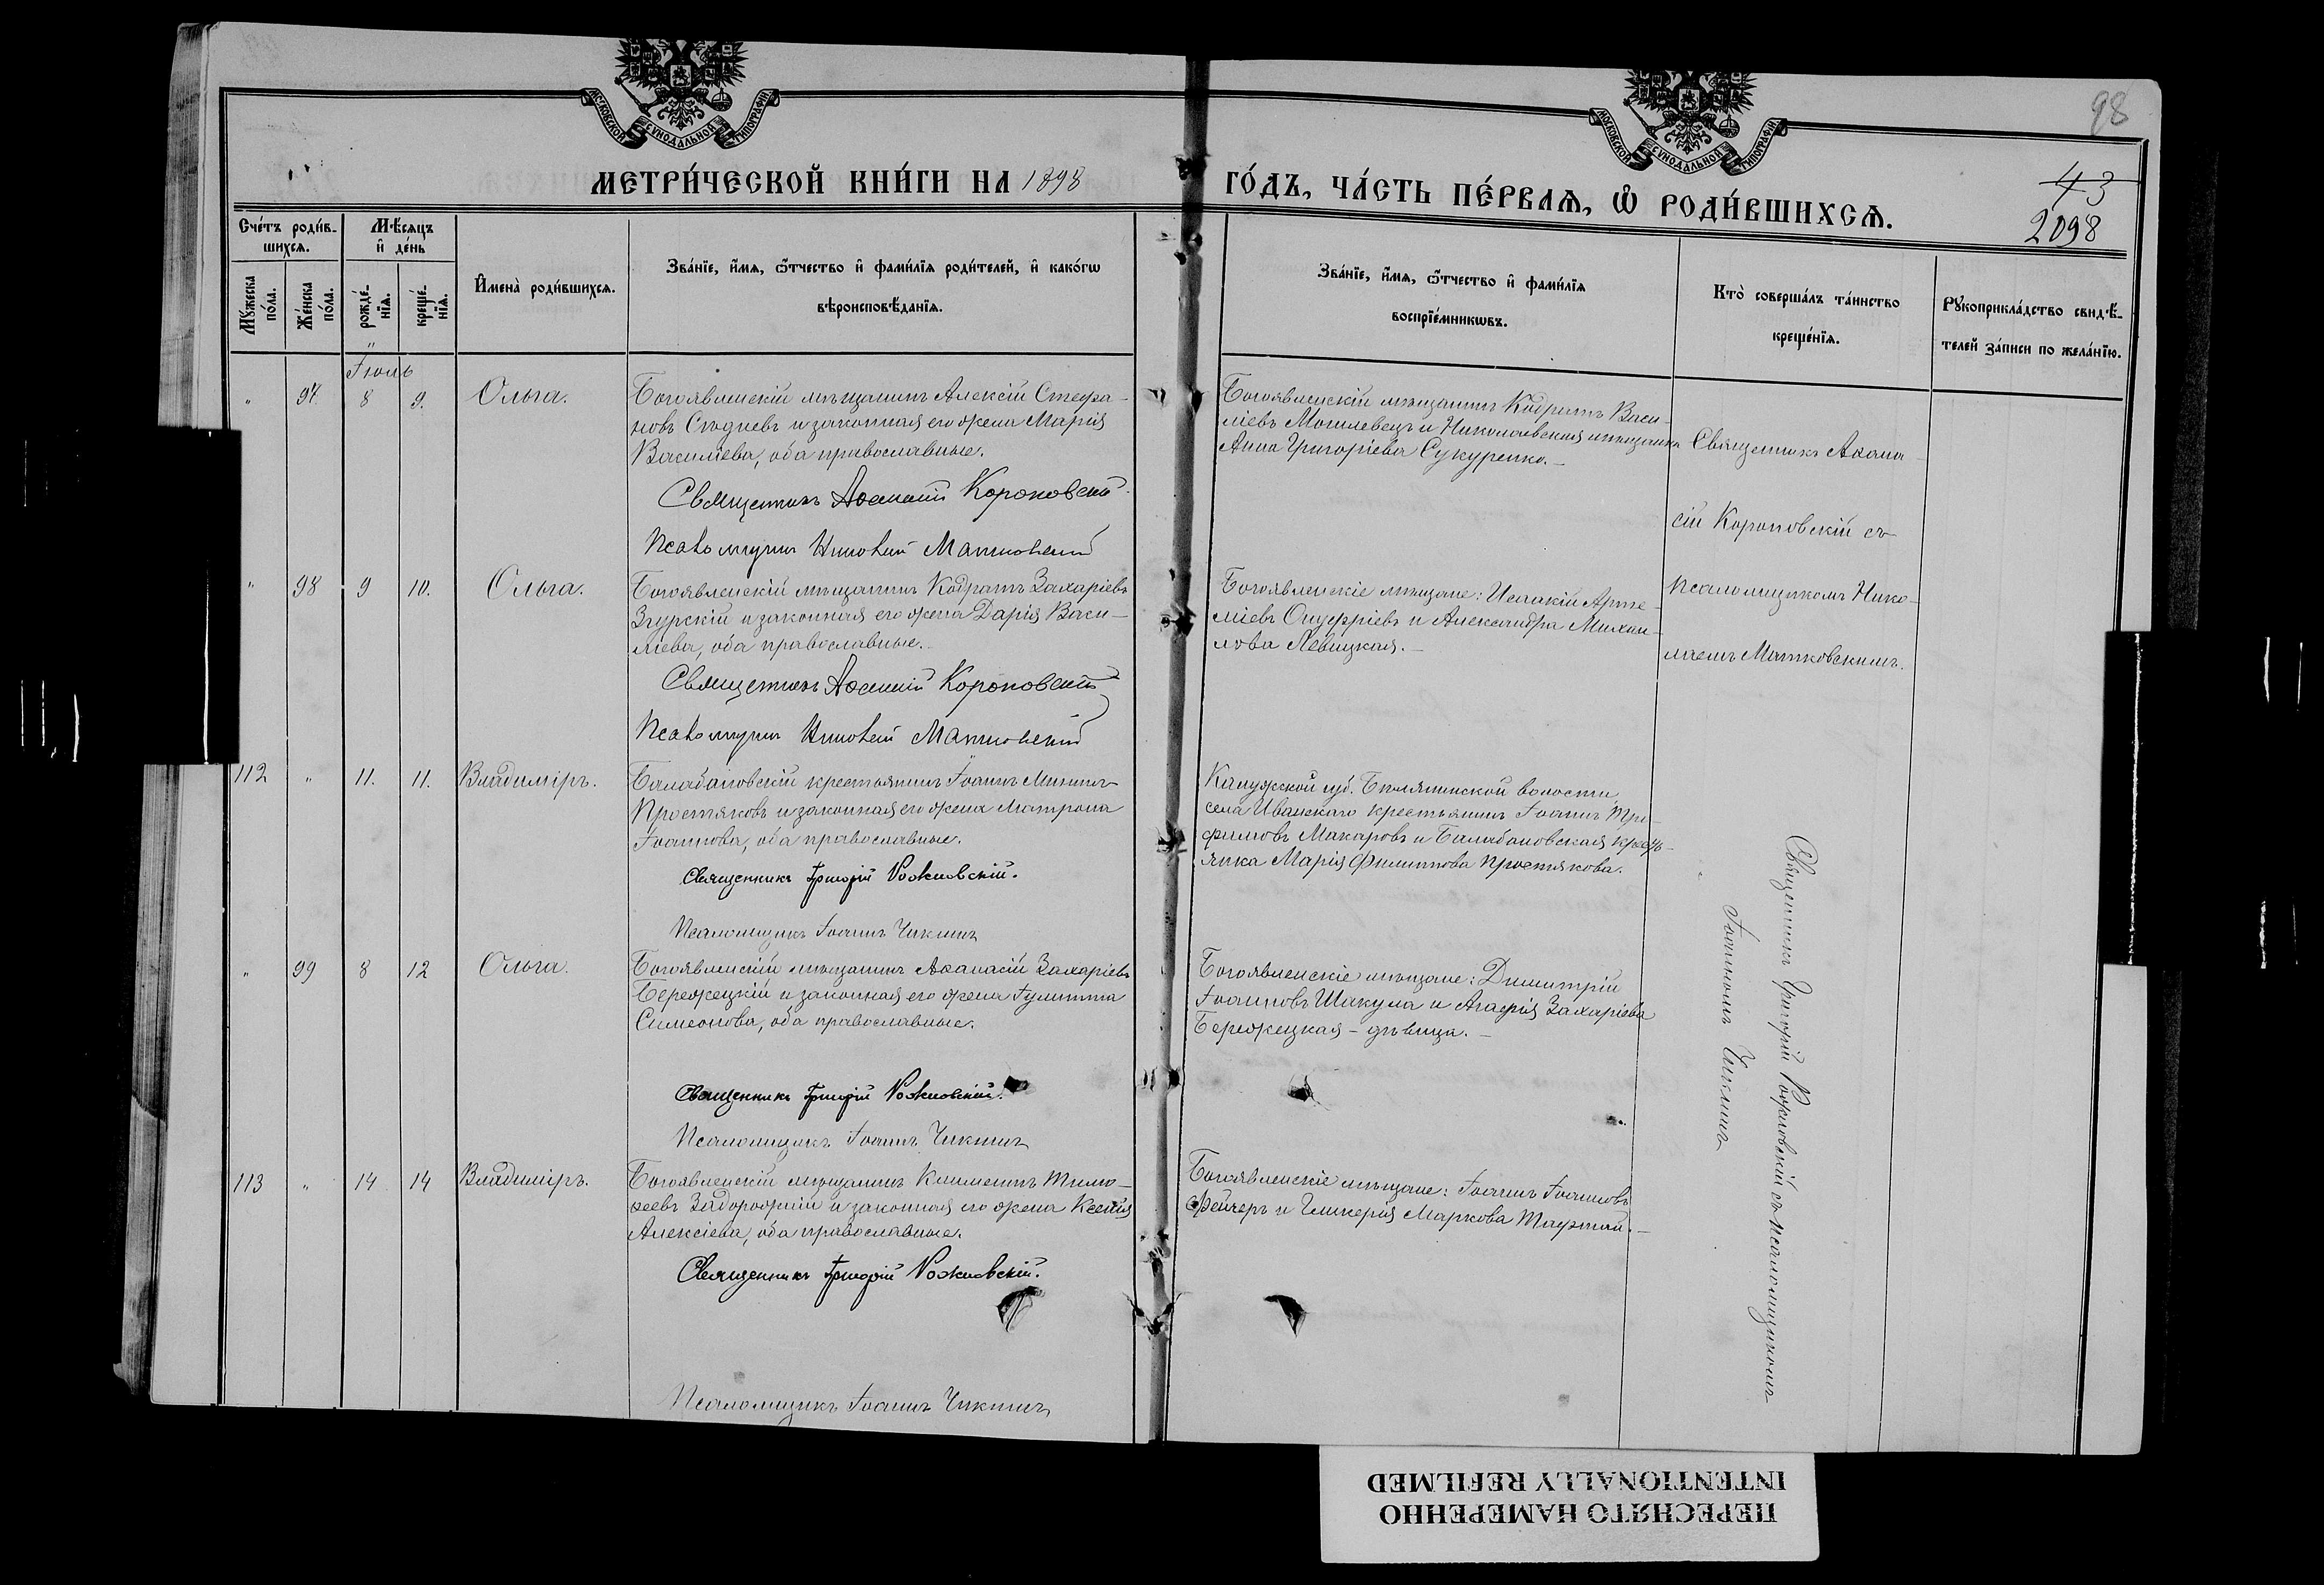 МОСКОВСКОЙ СѴНОДАЛЬНОЙ ТИПОГРАФІИ
МОСКОВСКОЙ СѴНОДАЛЬНОЙ ТИПОГРАФІИ
98
МЕТРИ́ЧЕСКОЙ КНИ́ГИ НА 1898
ГО́ДЪ, ЧА́СТЬ ПЕ́РВАѦ, Ѡ҆ РОДИ́ВШИХСѦ.
43
2098
Сче́тъ роди́в-
шихсѧ.
Мѣ́сѧцъ
и҆ де́нь
Мꙋ́жеска
по́ла.
Же́нска
по́ла.
рожде́-
нїѧ.
креще́-
нїѧ.
И҆мена̀ роди́вшихсѧ.
Зва́нїе, и҆́мѧ, ѻ҆́тчество и҆ фами́лїѧ роди́телей, и҆ како́гѡ
вѣроисповѣ́данїѧ.
Зва́нїе, и҆́мѧ, ѻ҆́тчество и҆ фами́лїѧ
воспрїе́мникѡвъ.
Кто̀ соверша́лъ та́инство
креще́нїѧ.
Рꙋкоприкла́дство свидѣ́-
телей за́писи по жела́нїю.
Іюль
" 97. 8 9. Ольга.
Богоявленскій мѣщанинъ Алексій Стефа-
новъ Слѣднев и законная его жена Марія
Василіева, оба православные.
Священникъ Аѳанасій Короновскій
Псаломщикъ Николай Матковскій
Богоявленскій мѣщанинъ Кодратъ Васи-
ліевъ Могилевецъ и Николаевская мѣщанка
Анна Григоріева Сукуренко.-
Священникъ Аѳана-
сій Короновскій съ
псаломщикомъ Нико-
лаемъ Матковскимъ.
" 98 9 10. Ольга.
Богоявленскій мѣщанинъ Кодратъ Захаріевъ
Згурскій и законная его жена Дарія Васи-
ліева, оба православные.
Священникъ Аѳанасій Короновскій
Псаломщикъ Николай Матковскій
Богоявленскіе мѣщане: Исаакій Арте-
міевъ Онуфріевъ и Александра Михаи-
лова Левицкая.-
112 " 11. 11. Владиміръ.
Балабановскій крестьянинъ Іоаннъ Мининъ
Простяковъ и законная его жена Матрона
Іоаннова, оба православные.
Священникъ Григорій Рожновскій.
Псаломщикъ Іоаннъ Чикминъ
Калужской губ. волости
села Иванскаго крестьянинъ Іоаннъ Три-
фимовъ Макаровъ и Балабановская кресть-
янка Марія Филиппова Простякова.
" 99 8 12 Ольга.
Богоявленскій мѣщанинъ Аѳанасій Захаріевъ
Бережецкій и законная его жена Іулитта
Симеонова, оба православные.
Священникъ Григорій Рожновскій.
Псаломщикъ Іоаннъ Чикминъ
Богоявленскіе мѣщане: Димитрій
Іоанновъ Шакула и Агафія Захаріева
Бережецкая - дѣвица.-
Священникъ Григорій Рожновскій съ псаломщикомъ
Іоанномъ Чикминъ
113 " 14 14 Владиміръ.
Богоявленскій мѣщанинъ Климентъ Тимо-
ѳеевъ Задорожній и законная его жена Ксенія
Алексіева, оба православные.
Священникъ Григорій Рожновскій.
Псаломщикъ Іоаннъ Чикминъ
Богоявленскіе мѣщане: Іоаннъ Іоанновъ
Фейчеръ и Гликерія Маркова
ПЕРЕСНЯТО НАМЕРЕННО
INTENTIONALLY REFILMED